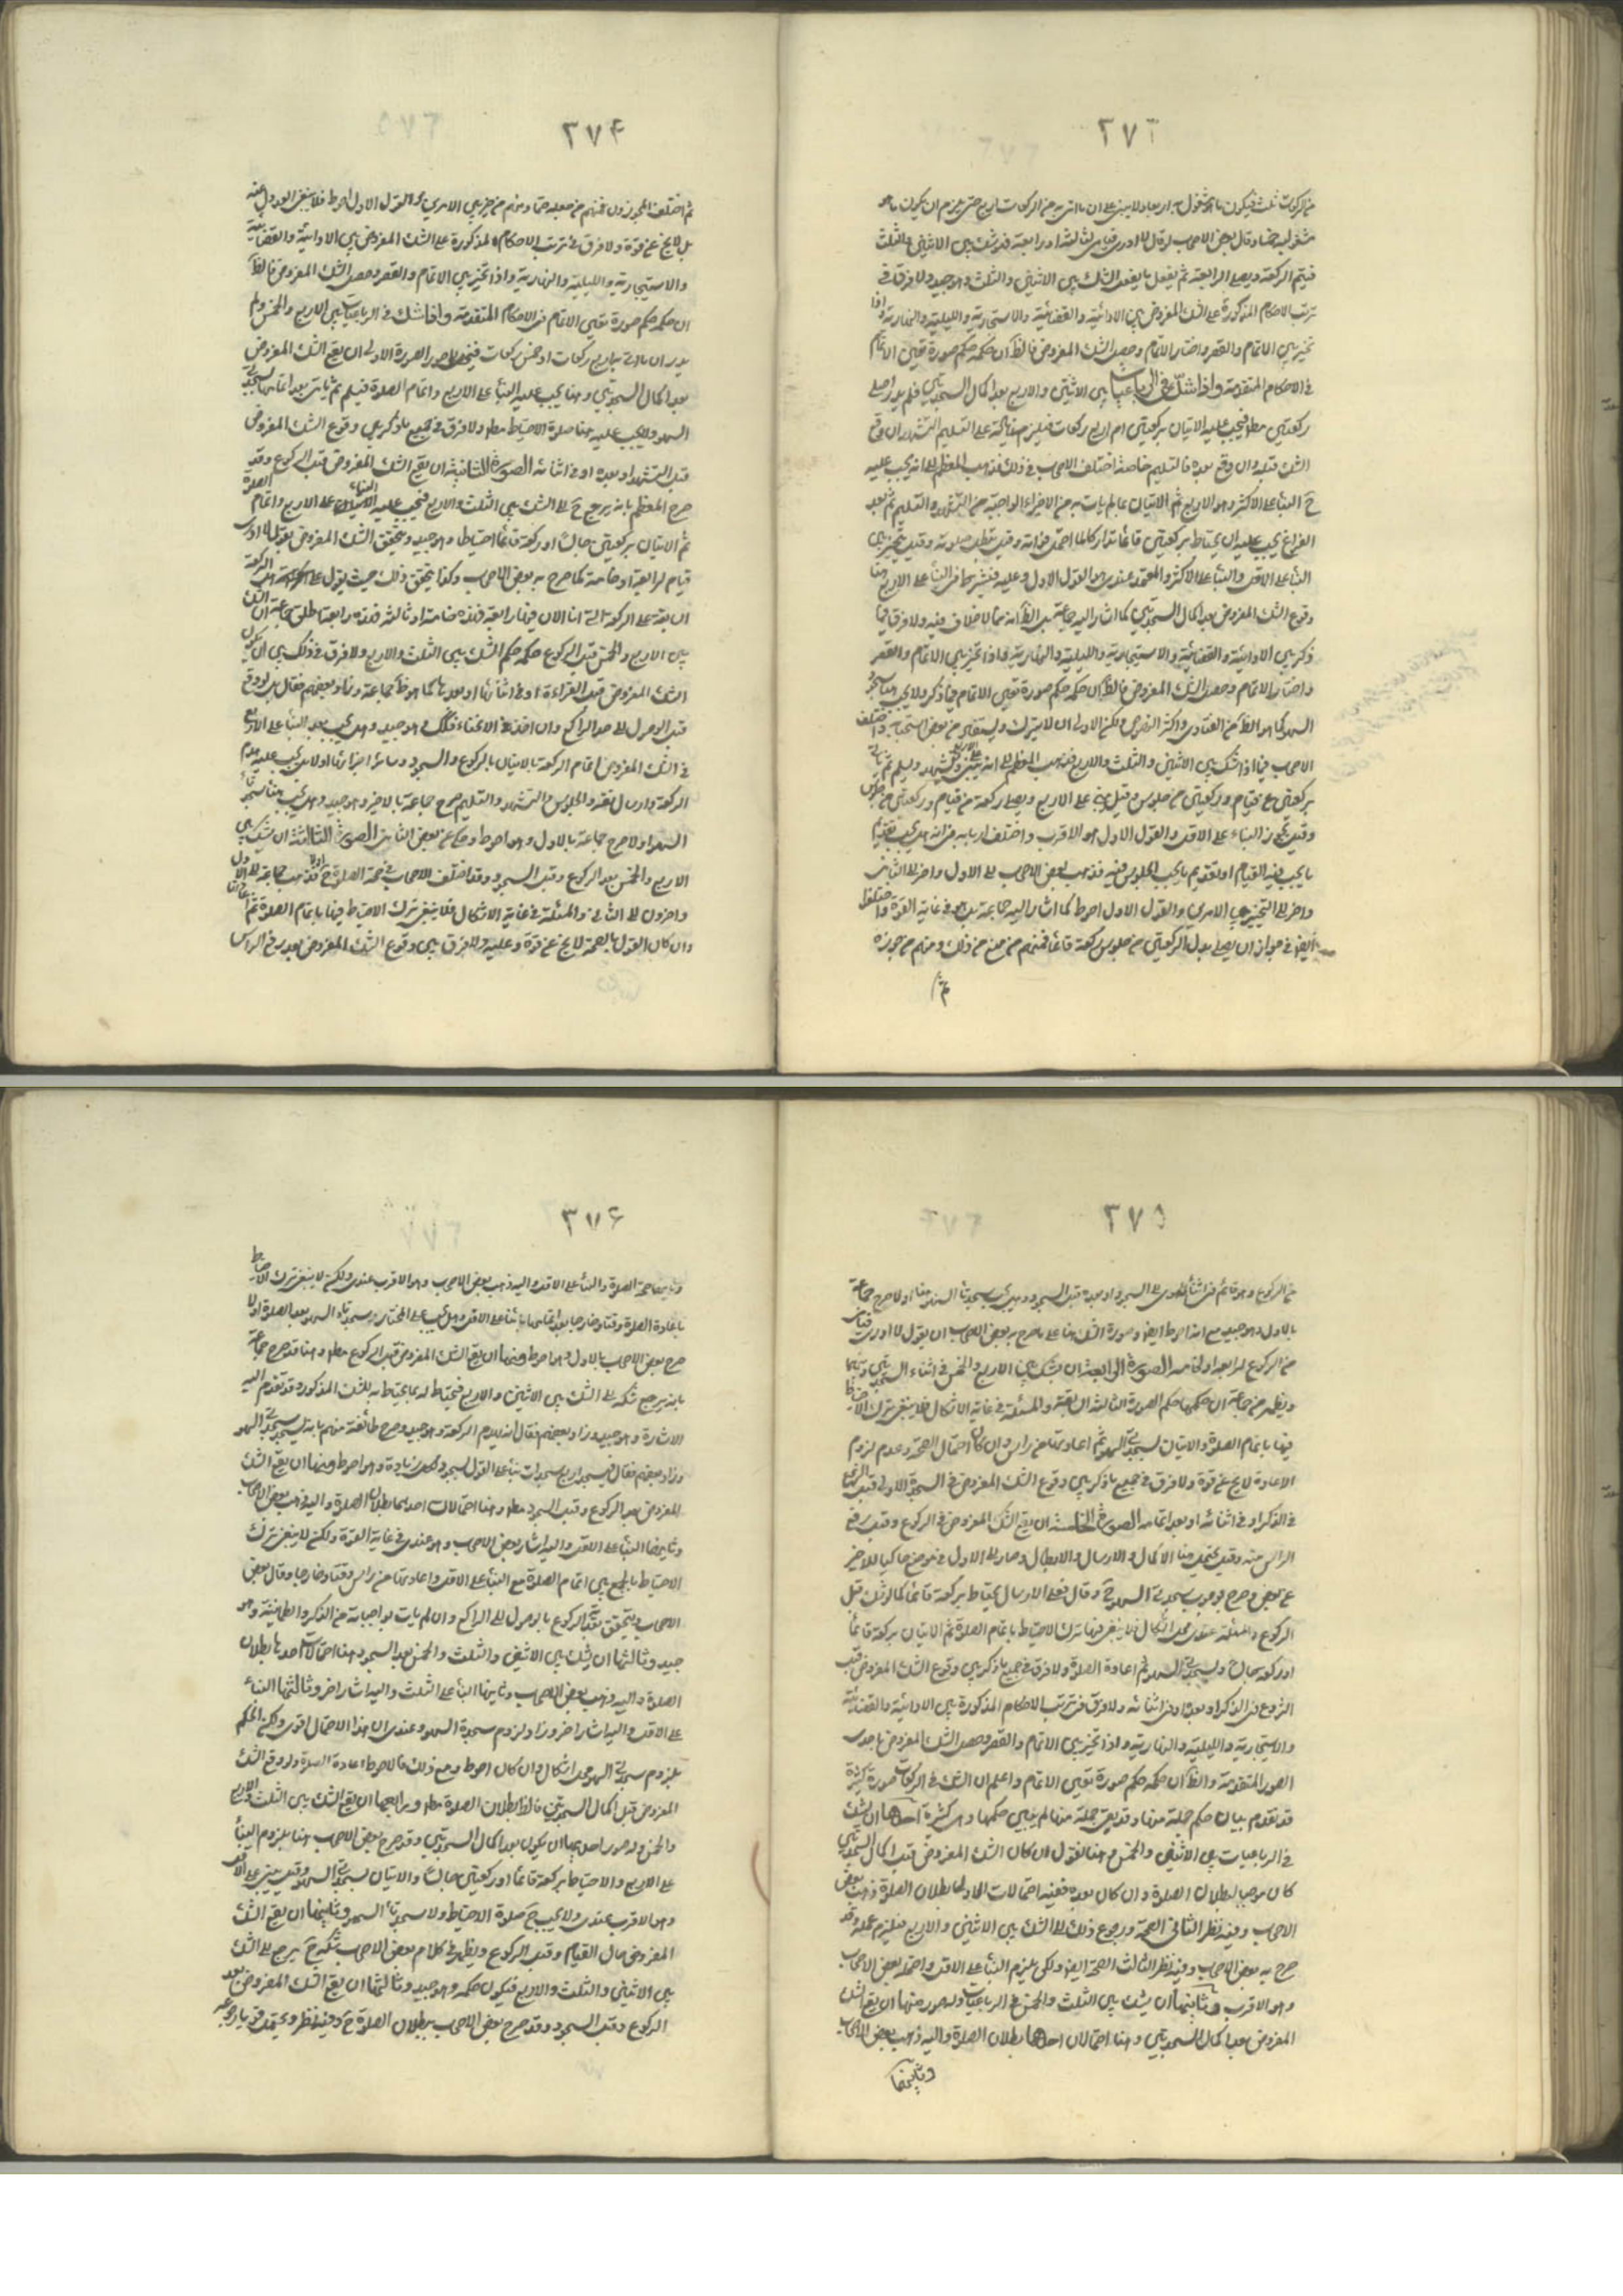 ٢٧٣
فيتم الركعة ويصلي الرابعة ثم يفعل ما يفعل الشك بين الاثنين والثلث وهو جيد ولا فرق في
ترتب الاحكام المذكورة على الشك المفروض بين الادائية والقضائية والاستيجارية والليلية والنهارية واذا
تخير بين الاتمام والقصر واختار الاتمام وحصل الشك المفروض فالظ ان حكمه حكم صورة تعين الاتمام
في الاحكام المتقدمة واذا شك في الرباعيات بين الاثنتين والاربع بعد اكمال السجدتين فلم يدر اصلى
ركعتين
الشك قبله وان وقع بعده فالتسليم خاصة اختلف الاصحاب في ذلك فذهب المعظم الى انه يجب عليه
ح البناء على الاكثر وهو الاربع ثم الاتيان بما لم يات به من الاجزاء الواجبة من التشهد والتسليم ثم بعد
الفراغ يجب عليه ان يحتاط بركعتين قائما
البناء على الاقل والبناء على الاكثر والمعتمد عندي هو القول الاول وعليه فيشترط في البناء على الاربع هنا
وقوع الشك المفروض بعد اكمال السجدتين كما اشار اليه جماعة بل الظ انه مما لا خلاف فيه ولا فرق فيما
ذكر بين الادائية والقضائية والاستيجارية والليلية والنهارية واذا تخير بين الاتمام والقصر
واختار الاتمام وحصل الشك المفروض فالظ ان حكمه حكم صورة تعين الاتمام فيما ذكر ولا يجب هنا سجود
السهو كما هو الظ من الفتاوى واكثر النصوص ولكن الاولى ان لا يترك ويستفاد من بعض استحبابه واختلف
الاصحاب فيما اذا شك بين الاثنين والثلث والاربع فذهب المعظم الى انه يبنى على الاربع ويتشهد ويسلم ثم ياتي
بركعتين من قيام وبركعتين من جلوس وقيل يبنى على الاربع ويصلي ركعة من قيام وركعتين من جلوس
وقيل يجوز البناء على الاقل والقول الاول هو الاقرب واختلف اربابه في انه هل يجب تقديم
ما يجب فيه القيام او تقديم ما يجب الجلوس فيه فذهب بعض الاصحاب الى الاول واخر الى الثاني
واخر الى التخيير بين الامرين والقول الاول احوط كما اشار اليه جماعة بل هو في غاية القوة واختلفوا
ايض في جواز ان يصلي بدل الركعتين من جلوس ركعة قائما فمنهم من منع من ذلك ومنهم من جوزه
ثم
٢٧۴
ثم اختلف المجوزون فمنهم من جعله حتما ومنهم من خير بين الامرين والقول الاول احوط فلا ينبغي العدول عنه
بل لا يخ عن قوة ولا فرق في ترتب الاحكام المذكورة على الشك المفروض بين الادائية والقضائية
والاستيجارية والليلية والنهارية واذا تخير بين الاتمام والقصر وحصل الشك المفروض فالظ
ان حكمه حكم صورة تعين الاتمام في الاحكام المتقدمة واذا شك في الرباعيات بين الاربع والخمس ولم
يدر ان ما اتى به اربع ركعات او خمس ركعات فيتصور صور الصورة الاولى ان يقع الشك المفروض
بعد اكمال السجدتين وهنا يجب عليه البناء على الاربع واتمام الصلوة فيسلم ثم ياتي بعد اتمامها بسجدتي
السهو ولا يجب عليه هنا صلوة الاحتياط مط ولا فرق في جميع ما ذكر بين وقوع الشك المفروض
قبل التشهد او بعده او في اثنائه الصورة الثانية ان يقع الشك المفروض قبل الركوع وقد
صرح المعظم بانه يرجع ح الى الشك بين الثلث والاربع فيجب عليه البناء على الاربع واتمام الصلوة
ثم الاتيان بركعتين جالسا او ركعة قائما احتياطا وهو جيد ويتحقق الشك المفروض بقوله لا ادري
قيام لرابعة او خامسة كما صرح به بعض الاصحاب وكذا يتحقق ذلك حيث يقول
بين الاربع والخمس قبل الركوع حكمه حكم الشك بين الثلث والاربع ولا فرق في ذلك بين ان يكون
الشك المفروض قبل القراءة او في اثنائها او بعدها كما هو ظ جماعة وزاد بعضهم فقال بل لو وقع
قبل الوصول الى حد الراكع وان اخذ في الانحناء فكك وهو جيد وهل يجب بعد البناء على الاربع
في الشك المفروض اتمام الركعة بالاتيان بالركوع والسجود وسائر اجزائها اولا بل يجب عليه هدم
الركعة وارسال نفسه والجلوس والتشهد والتسليم صرح جماعة بالاخير وهو جيد وهل يجب هنا سجدتا
السهو اولا صرح جماعة بالاول وهو احوط وحكي عن بعض الثاني الصورة الثالثة ان يشك بين
الاربع والخمس بعد الركوع وقبل السجود وقد اختلف الاصحاب في صحة الصلوة ح فذهب جماعة الى الاول
واخرون الى الثاني والمسئلة في غاية الاشكال فلا ينبغي ترك الاحتياط فيها باتمام الصلوة ثم اعادتها
وان كان القول بالصحة لا يخ عن قوة وعليه ولا فرق بين وقوع الشك المفروض بعد رفع الراس
٢٧۵
من الركوع وهو قائم او في اثناء الهوي الى السجود او بعده قبل السجود وهل يجب سجدتا السهو هنا اولا صرح جماعة
بالاول وهو جيد مع انه احوط ايض وصورة الشك هنا على ما صرح به بعض الاصحاب ان يقول لا ادري قيامي
من الركوع لرابعة او لخامسة الصورة الرابعة ان يشك بين الاربع والخمس في اثناء السجدتين
ويظهر من جماعة ان حكمها حكم الصورة الثالثة السابقة والمسئلة في غاية الاشكال فلا ينبغي ترك الاحتياط
فيها باتمام الصلوة والاتيان بسجدتي السهو ثم اعادتها من راس وان كان احتمال الصحة وعدم لزوم
الاعادة لا يخ عن قوة ولا فرق في جميع ما ذكر بين وقوع الشك المفروض في السجدة الاولى قبل
في الذكر او في اثنائه او بعد اتمامه الصورة الخامسة ان يقع الشك المفروض في الركوع وقبل رفع
الراس منه وقيل يحتمل هنا الاكمال والارسال والابطال وصار الى الاول في موضع حاكيا للاخير
عن بعض وصرح بوجوب سجدتي السهو ح وقال فعلى الارسال يحتاط بركعة قائما كما لو شك قبل
الركوع والمسئلة عندي محل اشكال فلا ينبغي فيها ترك الاحتياط باتمام الصلوة ثم الاتيان بركعة قائما
وبسجدتي السهو ثم اعادة الصلوة ولا فرق في جميع ما ذكر بين وقوع الشك المفروض قبل
الشروع في الذكر او بعده او في اثنائه ولا فرق في ترتب الاحكام المذكورة بين الادائية والقضائية
والاستيجارية والليلية والنهارية واذا تخير بين الاتمام والقصر وحصل الشك المفروض باحدى
الصور المتقدمة والظ ان حكمه حكم صورة تعين الاتمام واعلم ان الشك في الركعات صورة كثيرة
قد تقدم بيان حكم جملة منها وقد بقي جملة منها لم يتبين حكمها وهي كثيرة احدها ان يشك
في الرباعيات بين الاثنين والخمس وهنا نقول ان كان الشك المفروض قبل اكمال السجدتين
كان موجبا لبطلان الصلوة وان كان بعده ففيه احتمالات الاول بطلان الصلوة ذهب بعض
الاصحاب وفيه نظر الثاني الصحة ورجوع ذلك الى الشك بين الاثنين والاربع فيلزم عمله وقد
صرح به بعض الاصحاب وفيه نظر الثالث الصحة ايض ولكن يلزم البناء على الاقل واحتمله بعض الاصحاب
وهو الاقرب وثانيها ان يشك بين الثلث والخمس في الرباعيات وله صور منها ان يقع الشك
المفروض بعد اكمال السجدتين وهنا احتمالان احدهما بطلان الصلوة واليه ذهب بعض الاصحاب
وثانيهما
٢٧۶
وثانيهما صحة الصلوة والبناء على الاقل واليه ذهب بعض الاصحاب وهو الاقرب عندي ولكن لا ينبغي ترك الاحتياط
باعادة الصلوة وقتا وخارجا بعد اتمامها بانيا على الاقل وهل يجب على المختار سجدتا السهو بعد الصلوة اولا
صرح بعض الاصحاب بالاول وهو احوط ومنها ان يقع الشك المفروض قبل الركوع مط وهنا قد صرح جماعة
بانه يرجع شكه الى الشك بين الاثنين والاربع فيحتاط له بما يحتاط به للشك المذكور وقد تقدم اليه
الاشارة وهو جيد وزاد بعضهم فقال انه يهدم الركعة وهو جيد وصرح طائفة منهم بانه يسجد سجدتي السهو
وزاد بعضهم فقال فيسجد اربع سجدات بناء على القول لسجود لكل زيادة وهو احوط ومنها ان يقع الشك
المفروض بعد الركوع وقبل السجود مط وهنا احتمالان احدهما بطلان الصلوة واليه ذهب بعض الاصحاب
وثانيهما البناء على الاقل واليه اشار بعض الاصحاب وهو عندي في غاية القوة ولكن لا ينبغي ترك
الاحتياط بالجمع بين اتمام الصلوة مع البناء على الاقل واعادتها من راس وقتا وخارجا وقال بعض
الاصحاب ويتحقق بعد الركوع بالوصول الى الراكع وان لم يات بواجباته من الذكر والطمانينة وهو
جيد وثالثها ان يشك بين الاثنين والثلث والخمس بعد السجود وهنا احتمالات احدها بطلان
الصلوة واليه ذهب بعض الاصحاب وثانيها البناء على الثلث واليه اشار اخر وثالثها البناء
على الاقل واليه اشار اخر وزاد لزوم سجدة السهو وعندي ان هذا الاحتمال اقوى ولكن الحكم
بلزوم سجدتي السهو محل اشكال وان كان احوط ومع ذلك فالاحوط اعادة الصلوة ولو وقع الشك
المفروض قبل اكمال السجدتين فالظ بطلان الصلوة مط ورابعها ان يقع الشك بين الثلث والاربع
والخمس وله صور احدها ان يكون بعد اكمال السجدتين وقد صرح بعض الاصحاب هنا بلزوم البناء
على الاربع والاحتياط بركعة قائما او ركعتين جالسا والاتيان بسجدتي السهو وقيل يبنى على الاقل
وهو الاقرب عندي ولا يجب ح صلوة الاحتياط ولا سجدتا السهو وثانيها ان يقع الشك
المفروض حال القيام وقبل الركوع ويظهر من كلام بعض الاصحاب شكه ح يرجع الى الشك
بين الاثنين والثلث والاربع فيكون حكمه وهو جيد وثالثها ان يقع الشك المفروض بعد
الركوع وقبل السجود وقد صرح بعض الاصحاب ببطلان الصلوة ح وفيه نظر